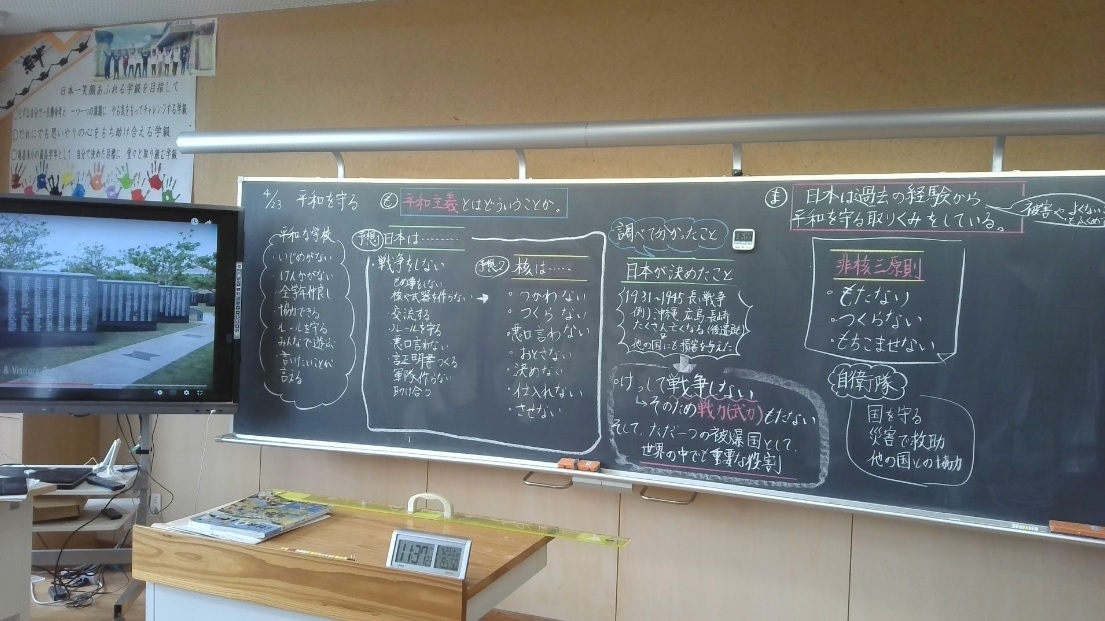 絆
日本一笑顔あふれる学級を目指して
○だれにでも思いやりの心をもち助け合える学級
& Visitors
4/23 平和を守る
平和な学校
・いじめがない
・けんかがない
・全学年仲良し
・協力できる
・ルールを守る
・みんなで遊ぶ
・言いたいことが
言える
め 平和主義とはどういうことか。
予想1 日本は………
・戦争をしない
もめ事をしない
核や武器を作らない→
交流する
ルールを守る
悪口言わない
証明書つくる
軍隊作らない
助け合う
予想2 核は……
・つかわない
・つくらない
・悪口言わない
・おとさない
・決めない
・仕入れない
・させない
調べて分かったこと
日本が決めたこと
1931~1945 長い戦争
例)沖縄 広島 長崎
たくさん亡くなる(後遺症)
他の国にも損害を与えた
・けっして戦争しない
↳そのため戦力(武力)もたない
そして、ただ一つの被爆国として、
世界の中でも重要な役割
ま 日本は過去の経験から
平和を守る取りくみをしている。
非核三原則
・もたない
・つくらない
・もちこませない
自衛隊
国を守る
災害で救助
他の国との協力
11:37